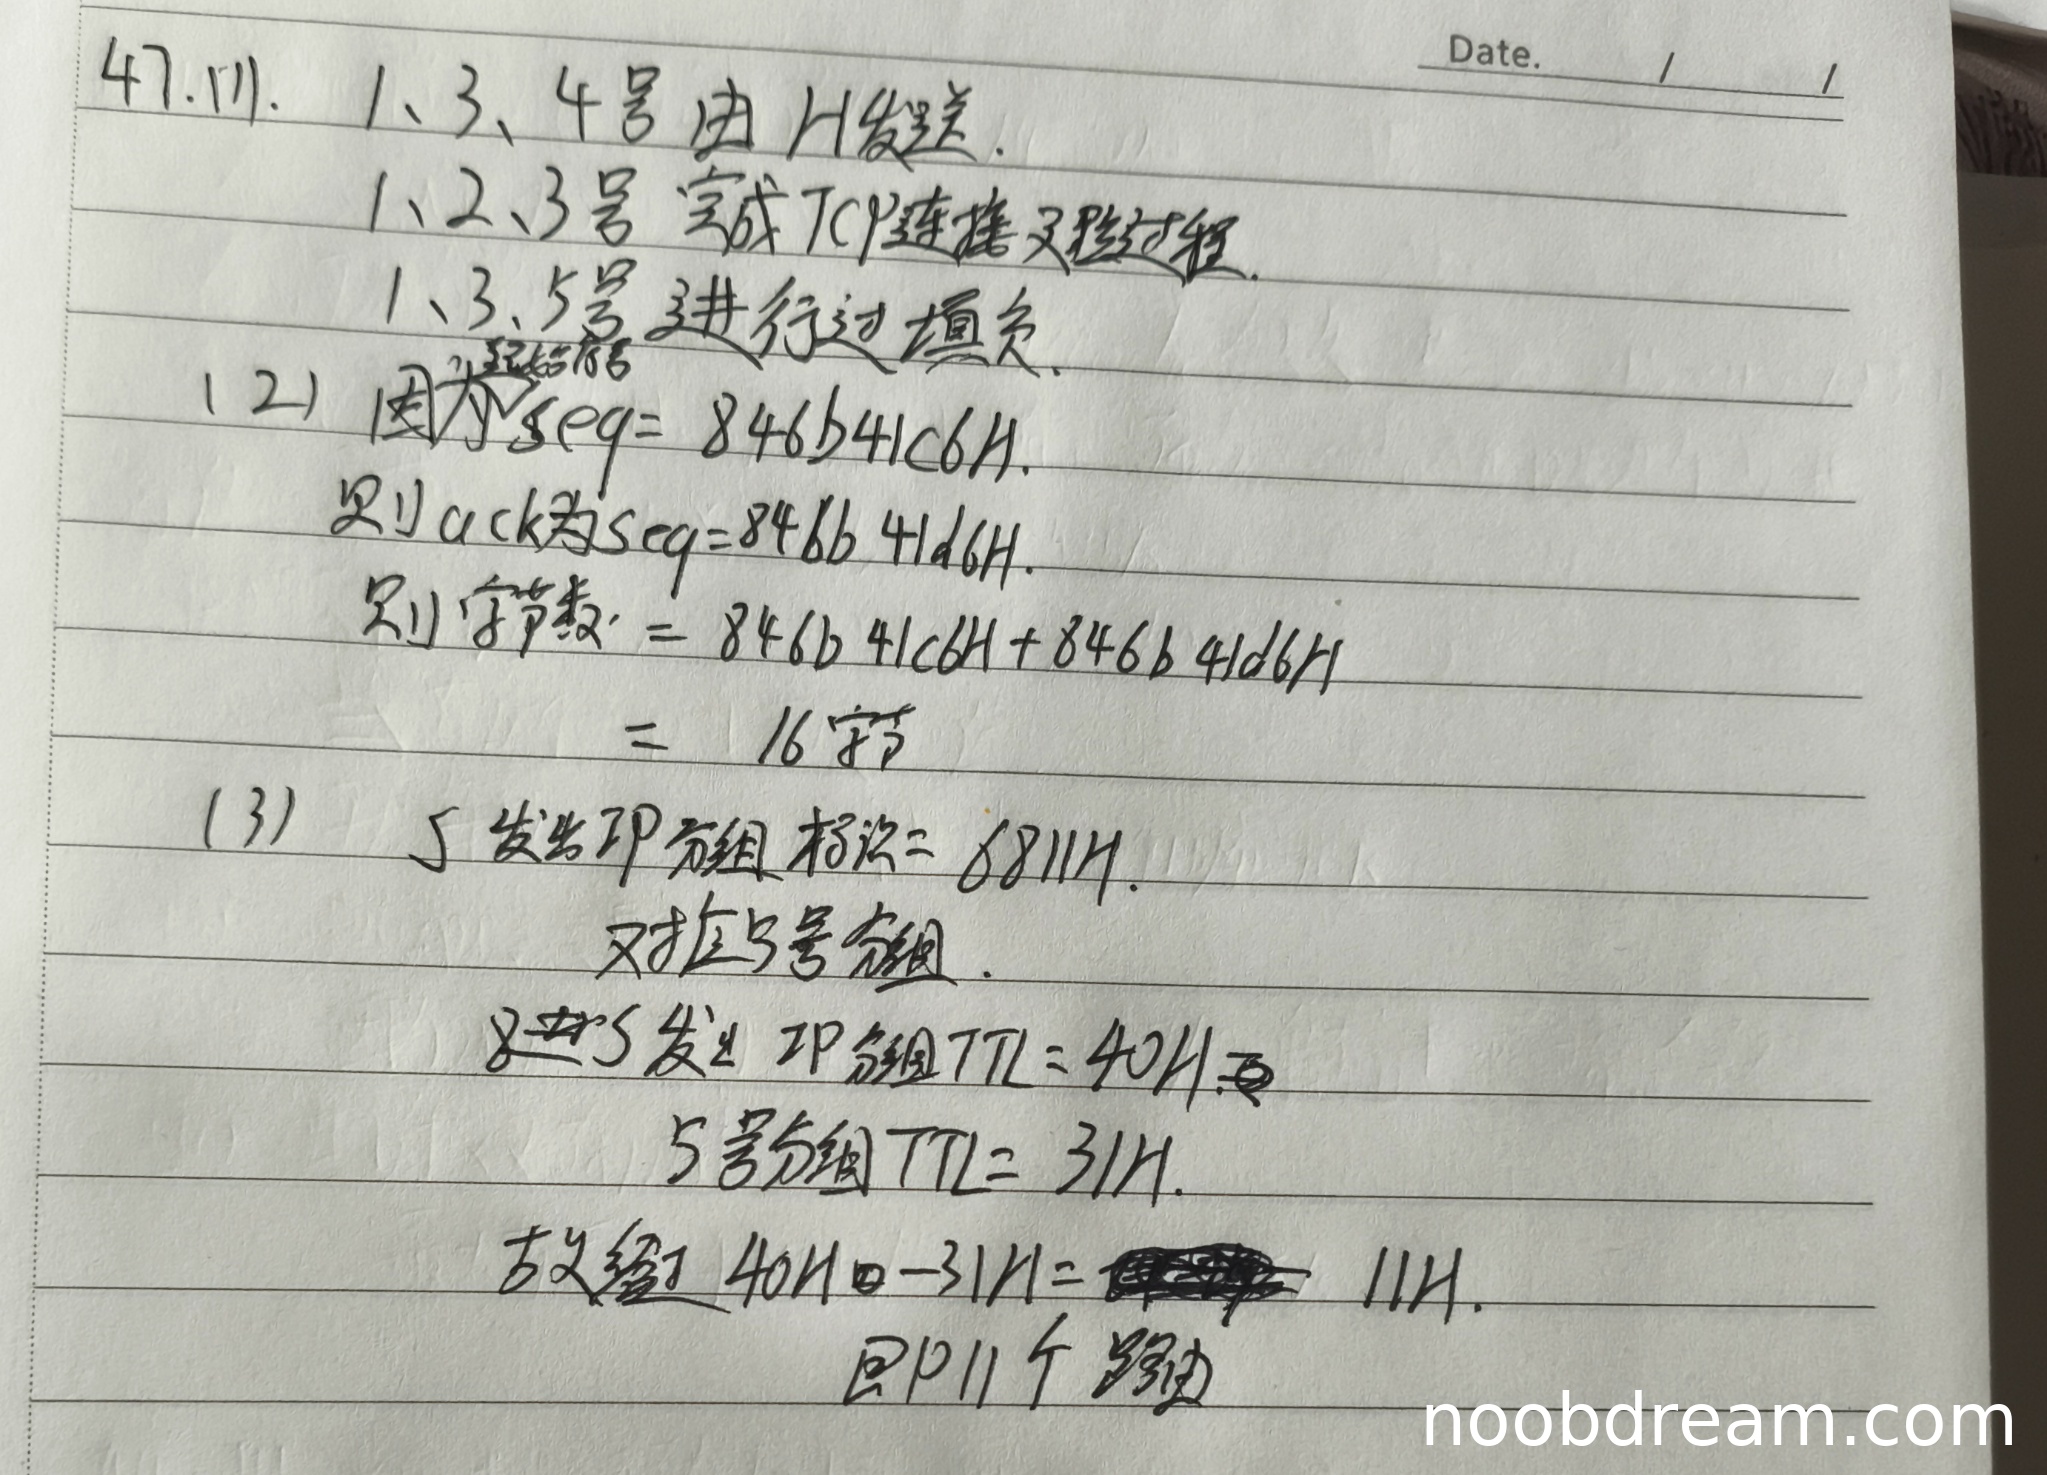 Date. / /
47.(1). 1、3、4号由H发送.
1、2、3号完成TCP连接过程.
1、3、5号进行过填充.
(2) 因为起始序号seq=846b41c6H.
则ack为seq=846b 41d6H.
则字节数=846b 41c6H+846b 41d6H
= 16字节
(3) S发出IP分组标识=6811H.
对应5号分组.
S发出IP分组TTL=40H.
5号分组TTL=31H.
故经过40H-31H= 11H.
即11个路由
noobdream.com